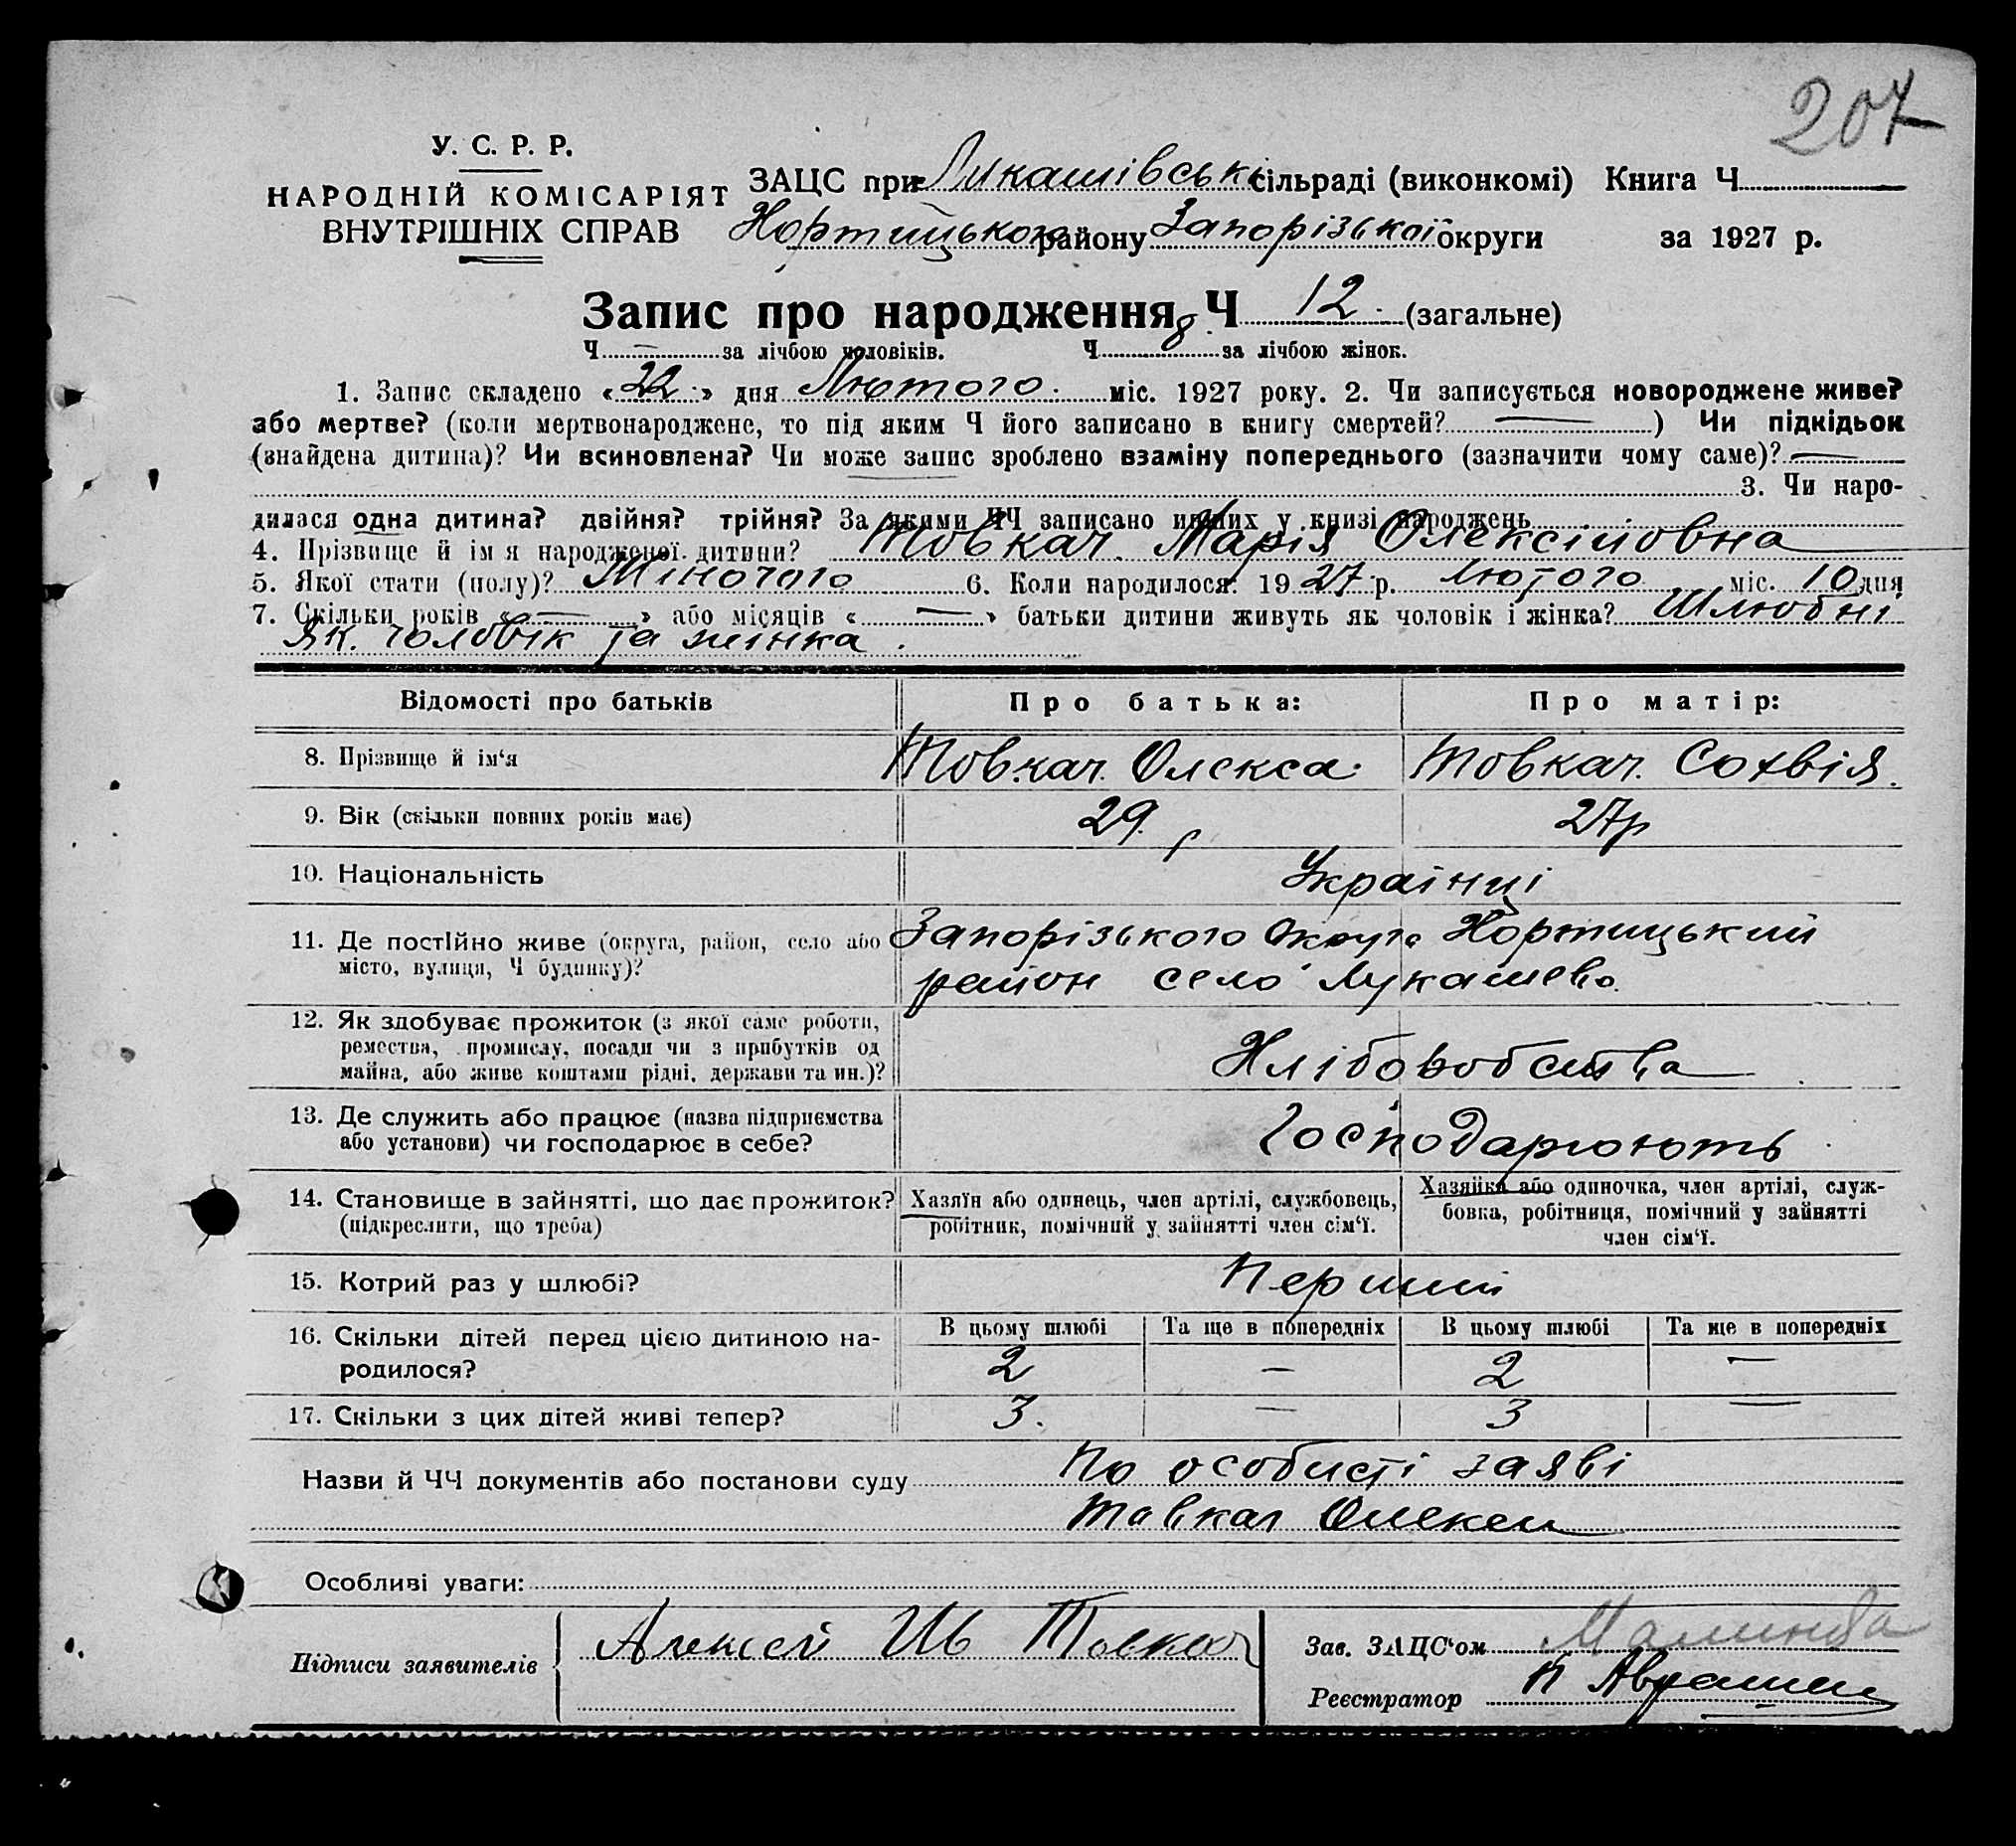 207
У. С. Р. Р.
НАРОДНІЙ КОМІСАРІЯТ
ВНУТРІШНІХ СПРАВ
ЗАЦС при Лукашівські сільраді (виконкомі) Книга Ч
Хортицького району Запорізької округи за 1927 р.
Запис про народження Ч 12 (загальне)
Ч — за лічбою чоловіків. Ч 8 за лічбою жінок.
1. Запис складено «22» дня Лютого міс. 1927 року. 2. Чи записується новороджене живе?
або мертве? (коли мертвонароджене, то під яким Ч його записано в книгу смертей? — ) Чи підкідьок
(знайдена дитина)? Чи всиновлена? Чи може запис зроблено взаміну попереднього (зазначити чому саме)? —
3. Чи наро-
дилася одна дитина? двійня? трійня? За якими ЧЧ записано инших у книзі народжень
4. Прізвище й ім я народженої дитини? Товкач Марія Олексіиовна
5. Якої стати (полу)? Жіночого 6. Коли народилося? 1927 р. Лютого міс. 10 дня
7. Скільки років « — » або місяців « — » батьки дитини живуть як чоловік і жінка? Шлюбні
як чоловік та жінка.
Відомості про батьків Про батька: Про матір:
8. Прізвище й ім‘я Товкач Олекса Товкач Софвія.
9. Вік (скільки повних років має) 29 р 27 р
10. Національність Українці
11. Де постійно живе (округа, район, село або Запорізького Округа Хортицький
місто, вулиця, Ч будинку)? район село Лукашево.
12. Як здобуває прожиток (з якої саме роботи,
ремества, промислу, посади чи з прибутків од
майна, або живе коштами рідні, держави та ин.)? Хліборобства
13. Де служить або працює (назва підприємства
або установи) чи господарює в себе? Господарюють
14. Становище в зайнятті, що дає прожиток? Хазяїн або одинець, член артілі, службовець, Хазяйка або одиночка, член артілі, служ-
(підкреслити, що треба) робітник, помічний у зайнятті член сім‘ї. бовка, робітниця, помічний у зайнятті
член сім‘ї.
15. Котрий раз у шлюбі? Перший
16. Скільки дітей перед цією дитиною на- В цьому шлюбі Та ще в попередніх В цьому шлюбі Та ще в попередніх
родилося? 2 — 2 —
17. Скільки з цих дітей живі тепер? 3. — 3 —
Назви й ЧЧ документів або постанови суду По особисті заяві
Товкач Олекси
Особливі уваги:
Підписи заявителів Алексей Ив Товкач
Зав. ЗАЦС‘ом
Реєстратор